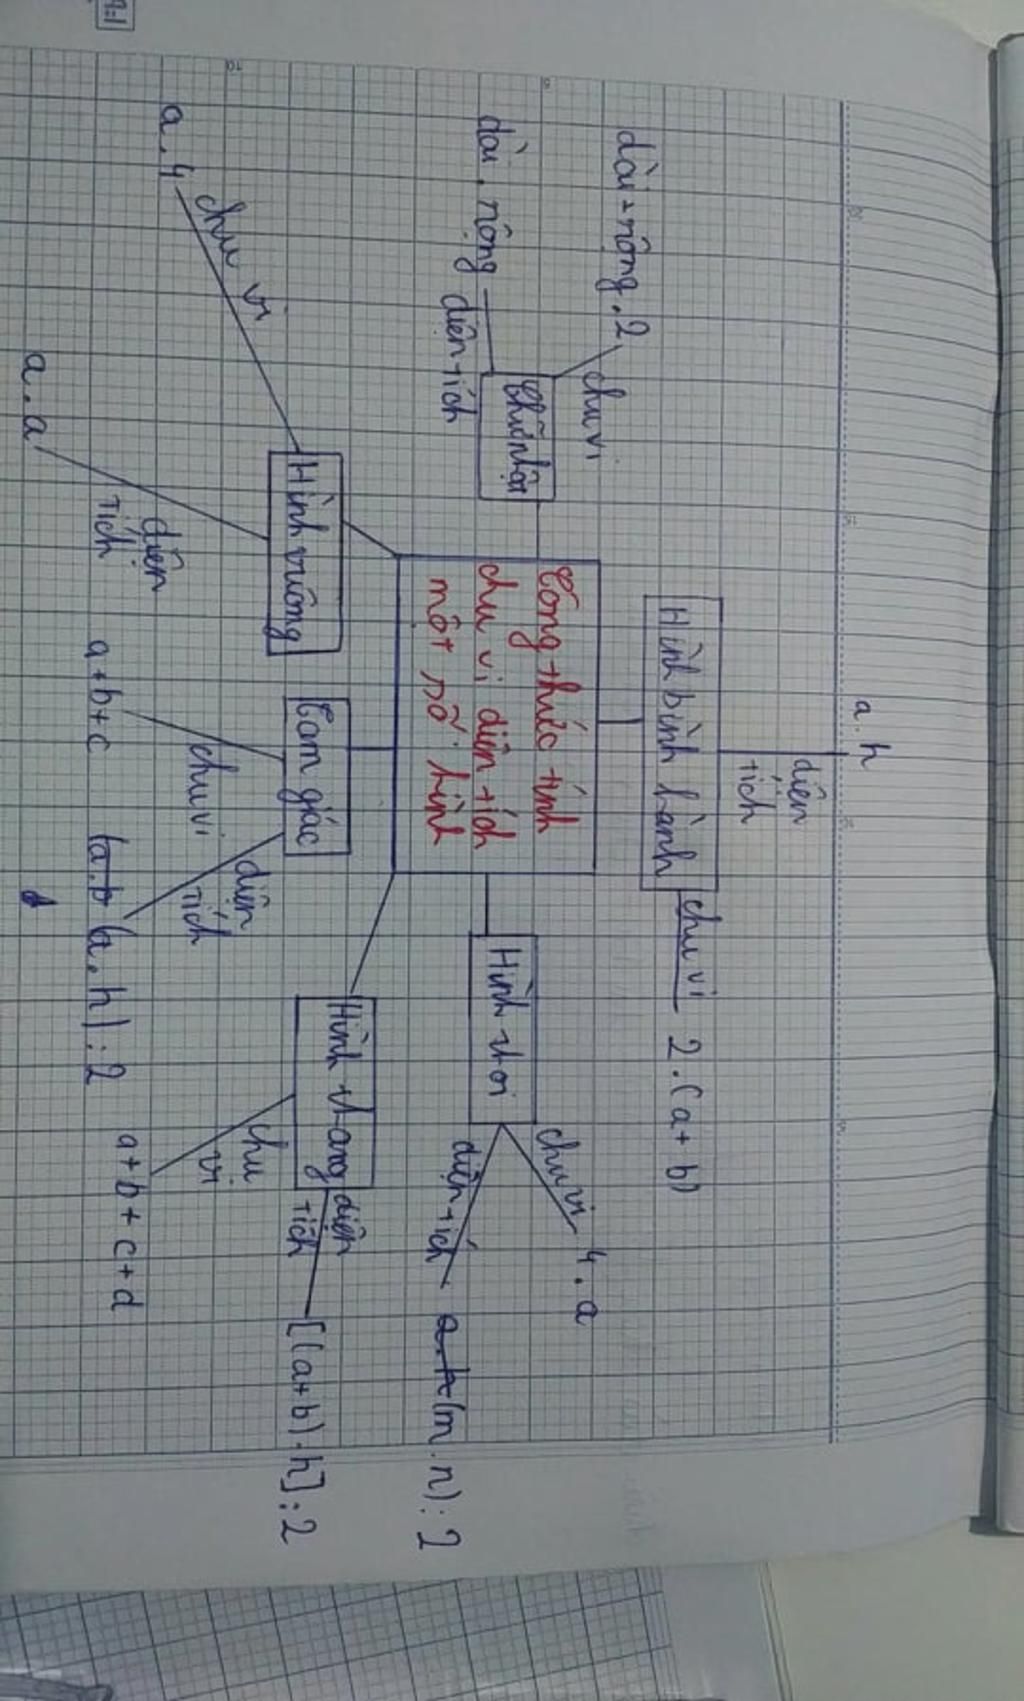 a.h
diện
tích
Hình bình hành
chu vi
2.(a+b)
dài+rộng.2
chu vi
dài.rộng
diện tích
Chữ nhật
Công thức tính
chu vi diện tích
một số hình
Hình thoi
chu vi
4.a
diện tích
a.h (m.n):2
Hình vuông
chu vi
a.4
diện
tích
a.a
Tam giác
chu vi
a+b+c
diện
tích
(a.b (a.h):2
Hình thang
diện
tích
[(a+b).h]:2
chu
vi
a+b+c+d